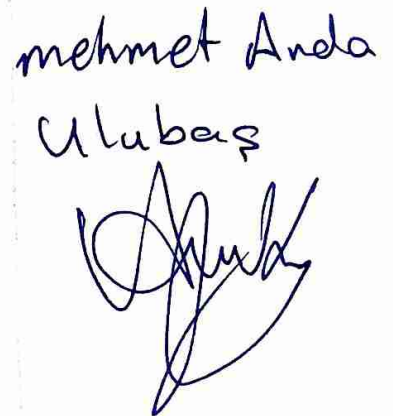 mehmet Anda
Ulubaş